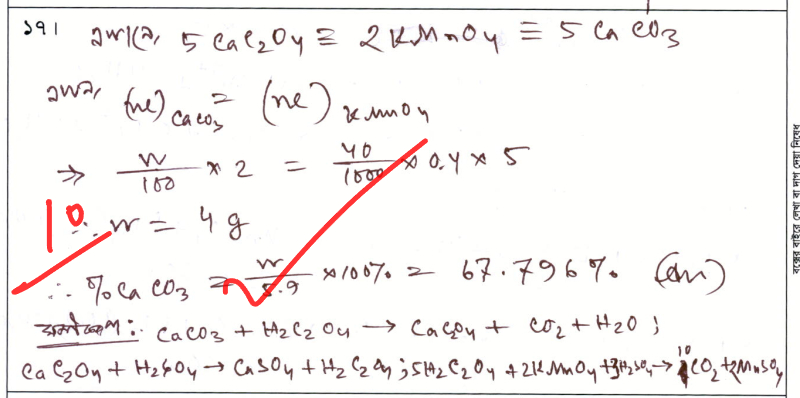 ১৭। এখানে, 5 CaC₂O₄ ≡ 2KMnO₄ ≡ 5 CaCO₃
এখন, (ne)CaCO₃ = (ne)KMnO₄
⇒ W/100 × 2 = 40/1000 × 0.4 × 5
10 ∴ W = 4 g
∴ % CaCO₃ = W/5.9 × 100% = 67.796% (Ans)
CaCO₃ + H₂C₂O₄ → CaC₂O₄ + CO₂ + H₂O ;
CaC₂O₄ + H₂SO₄ → CaSO₄ + H₂C₂O₄ ; 5H₂C₂O₄ + 2KMnO₄ + 3H₂SO₄ → 10CO₂ + 2MnSO₄
বক্সের বাইরে লেখা বা দাগ দেয়া নিষেধ